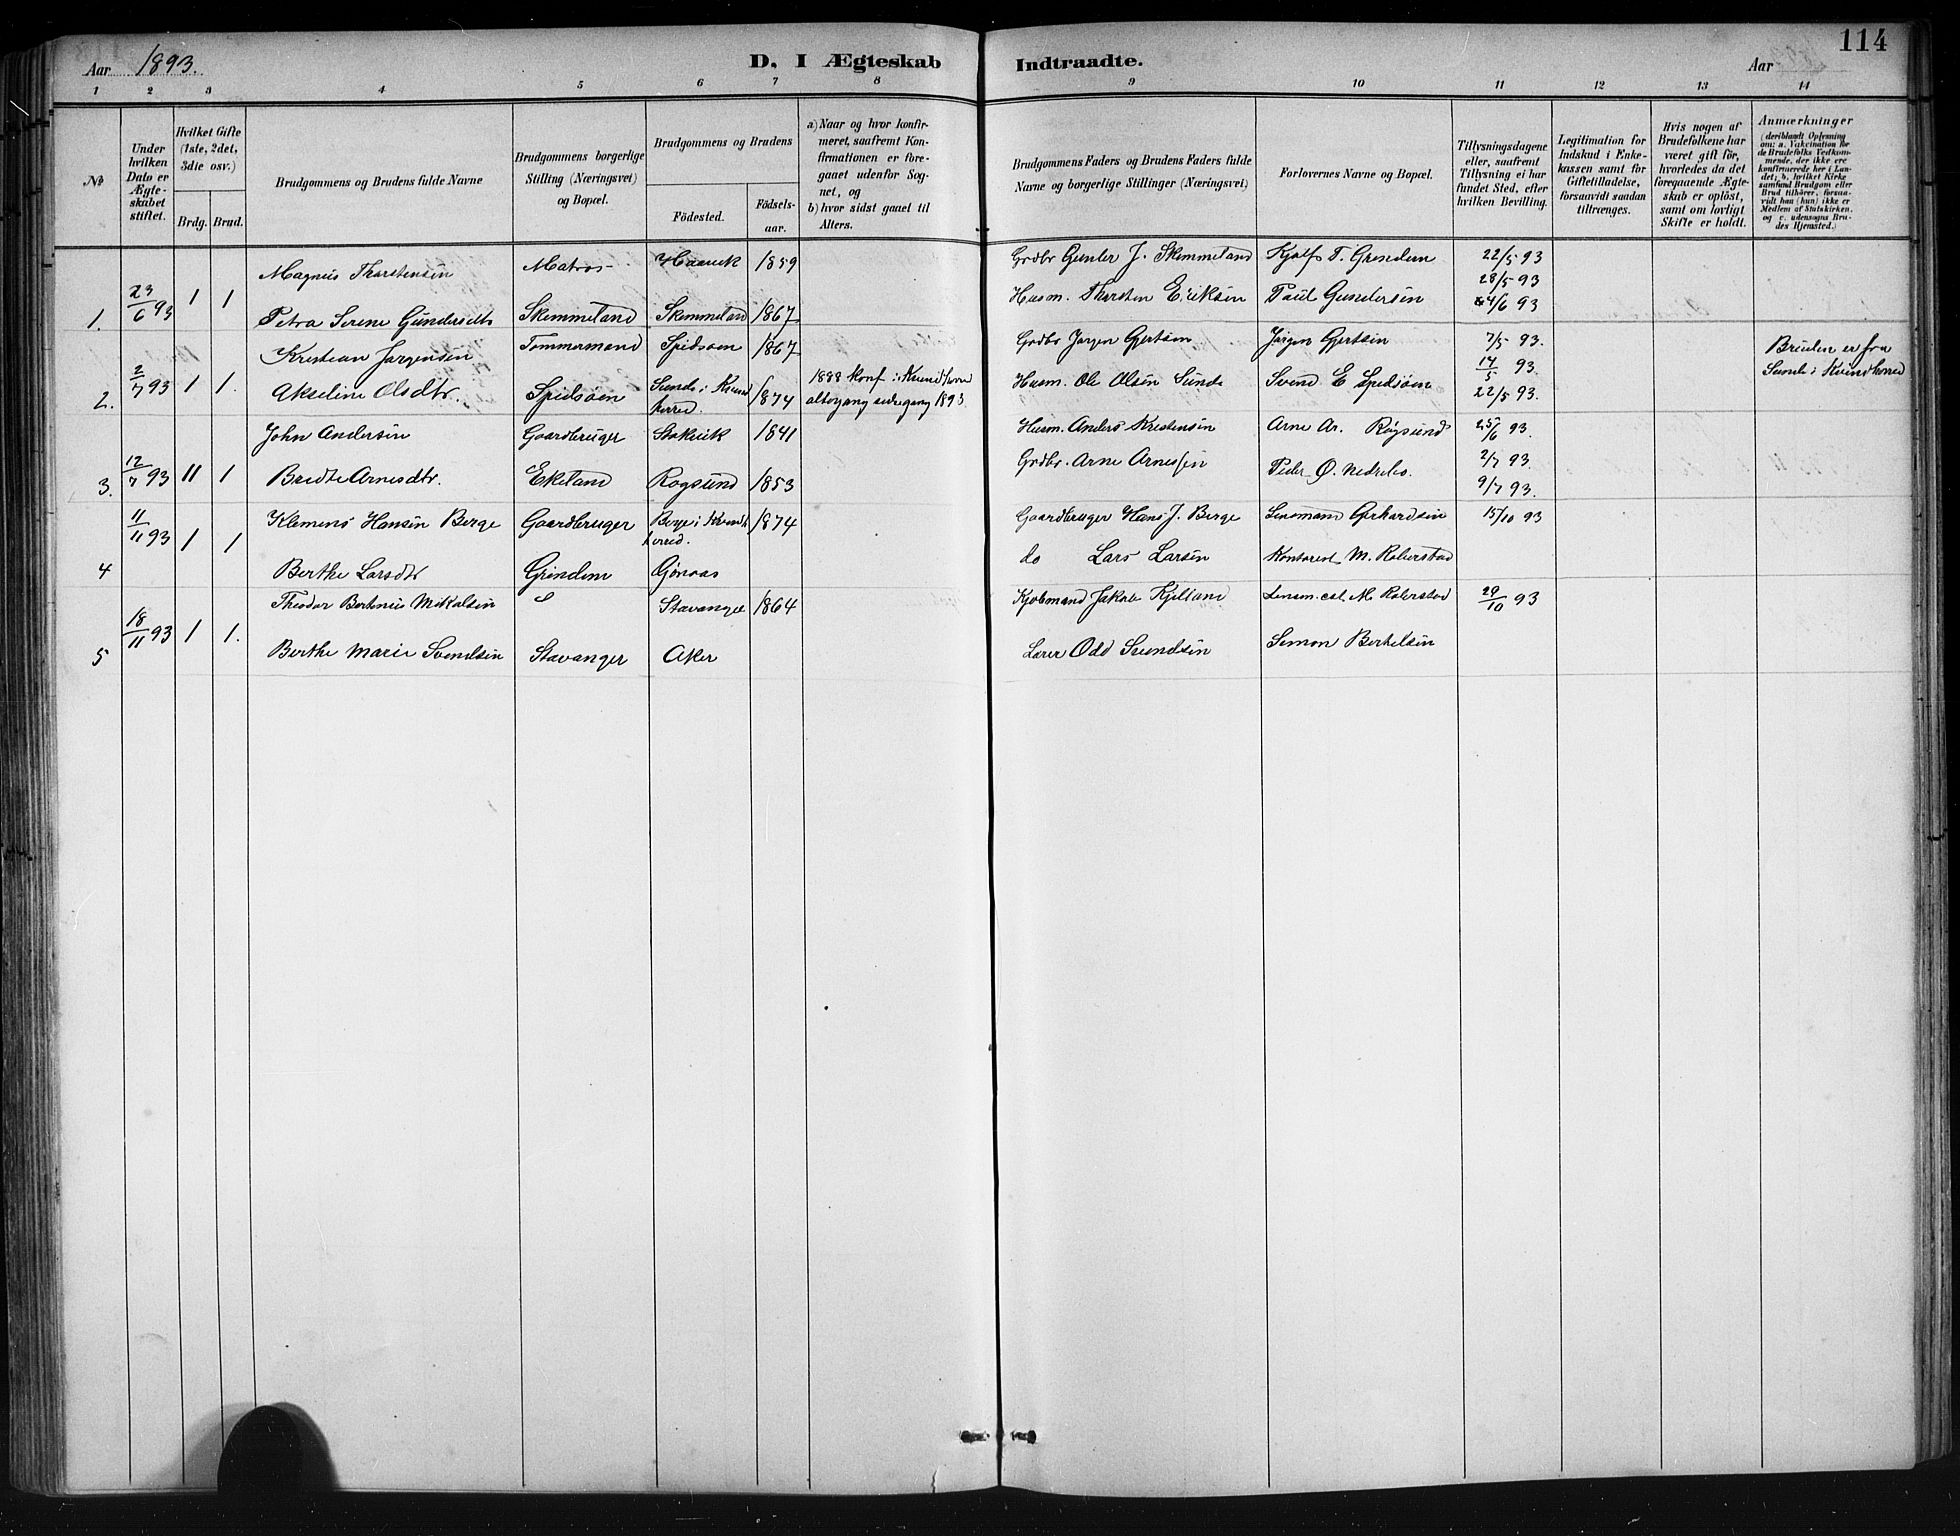 114
Aar 1893. D. I Ægteskab Indtraadte. Aar
1 2 3 4 5 6 7 8 9 10 11 12 13 14
№
Under hvilken Dato er Ægteskabet stiftet.
Hvilket Gifte (1ste, 2det, 3die osv.)
Brdg. Brud.
Brudgommens og Brudens fulde Navne
Brudgommens borgerlige Stilling (Næringsvei) og Bopæl.
Brudgommens og Brudens
Födested. Födsels-aar.
a) Naar og hvor konfirmeret, saafremt Konfirmationen er foregaaet udenfor Sognet, og
b) hvor sidst gaaet til Alters.
Brudgommens Faders og Brudens Faders fulde Navne og borgerlige Stillinger (Næringsvei)
Forlovernes Navne og Bopæl.
Tillysningsdagene eller, saafremt Tillysning ei har fundet Sted, efter hvilken Bevilling.
Legitimation for Indskud i Enkekassen samt for Giftetilladelse, forsaavidt saadan tiltrænges.
Hvis nogen af Brudefolkene har været gift för, hvorledes da det foregaaende Ægteskab er oplöst, samt om lovligt Skifte er holdt.
Anmærkninger
(deriblandt Oplysning om: a. Vakcination for de Brudefolks Vedkommende, der ikke ere konfirmerede her i Landet; b. hvilket Kirkesamfund Brudgom eller Brud tilhörer, forsaavidt han (hun) ikke er Medlem af Statskirken, og c. udensogns Brudes Hjemsted.)
Magnus Thorstensen Matros Haavik 1859 Grdbr Gunder J. Skemmeland Kjolf T. Grindem 22/5 93
28/5 93
1. 23/6 93 1 1 Petra Serene Gundersdtr Skemmeland Skemmeland 1867 Husm. Thorsten Eriksen Paul Gundersen 4/6 93
Kristian Jørgensen Tømmermand Spidsøen 1867 Grdbr Jørgen Gjertsen Jørgen Gjertsen 7/5 93. Bruden er fra
2. 2/7 93 1 1. Akseline Olsdtr. Spidsøen Sunde i Kvindherred. 1874 1888 konf i Kvindherred Husm. Ole Olsen Sunde Svend E Spidsøen 14/5 93. Sunde i Kvindherred
22/5 93.
John Andersen Gaardbruger Stokvik 1841 Husm. Anders Kristensen Arne Ar. Røgsund 25/6 93.
3. 12/7 93 11 1 Bredte Arnesdtr. Ekeland Rogsund 1853 Grdbr. Arne Arnessen Peder Ø. Nedrebø. 2/7 93.
9/7 93.
11/11 93 1 1 Klemens Hansen Berge Gaardbruger Berge i Kvindherred. 1874 Gaardbruger Hans J. Berge Lensmand Gerhardsen 15/10 93
4 Berthe Larsdtr Grindem do Lars Larsen Kontorist M. Robberstad
Theodor Bertinius Mikalsen Stavanger 1864 Kjøbmand Jakob Kjelland M. Robberstad 29/10 93
5 18/11 93 1 1. Berthe Marie Svendsen Stavanger Aker Lærer Odd Svendsen Simon Berthelsen